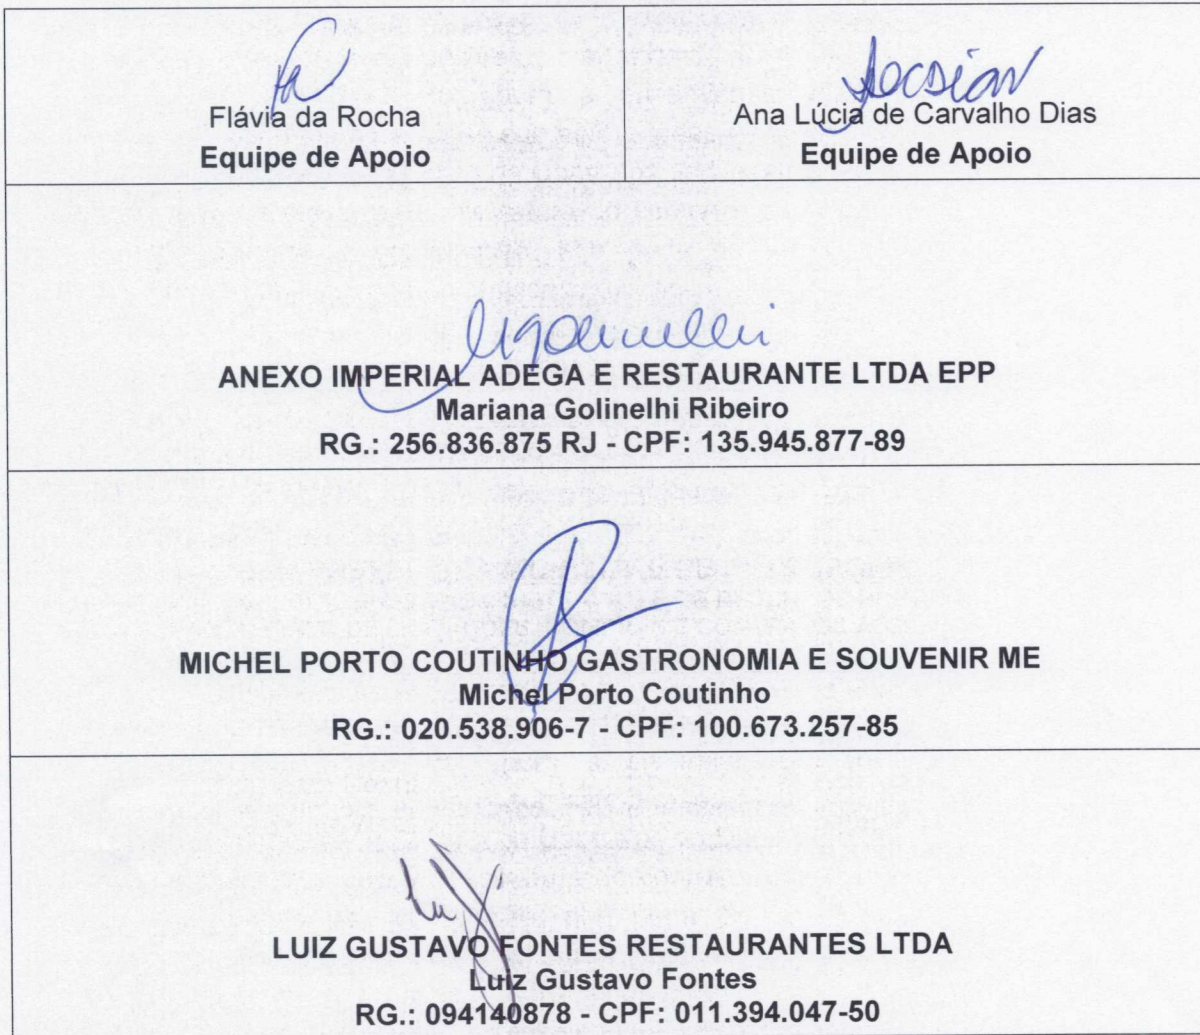 Flávia da Rocha
Equipe de Apoio
Ana Lúcia de Carvalho Dias
Equipe de Apoio
ANEXO IMPERIAL ADEGA E RESTAURANTE LTDA EPP
Mariana Golinelhi Ribeiro
RG.: 256.836.875 RJ - CPF: 135.945.877-89
MICHEL PORTO COUTINHO GASTRONOMIA E SOUVENIR ME
Michel Porto Coutinho
RG.: 020.538.906-7 - CPF: 100.673.257-85
LUIZ GUSTAVO FONTES RESTAURANTES LTDA
Luiz Gustavo Fontes
RG.: 094140878 - CPF: 011.394.047-50